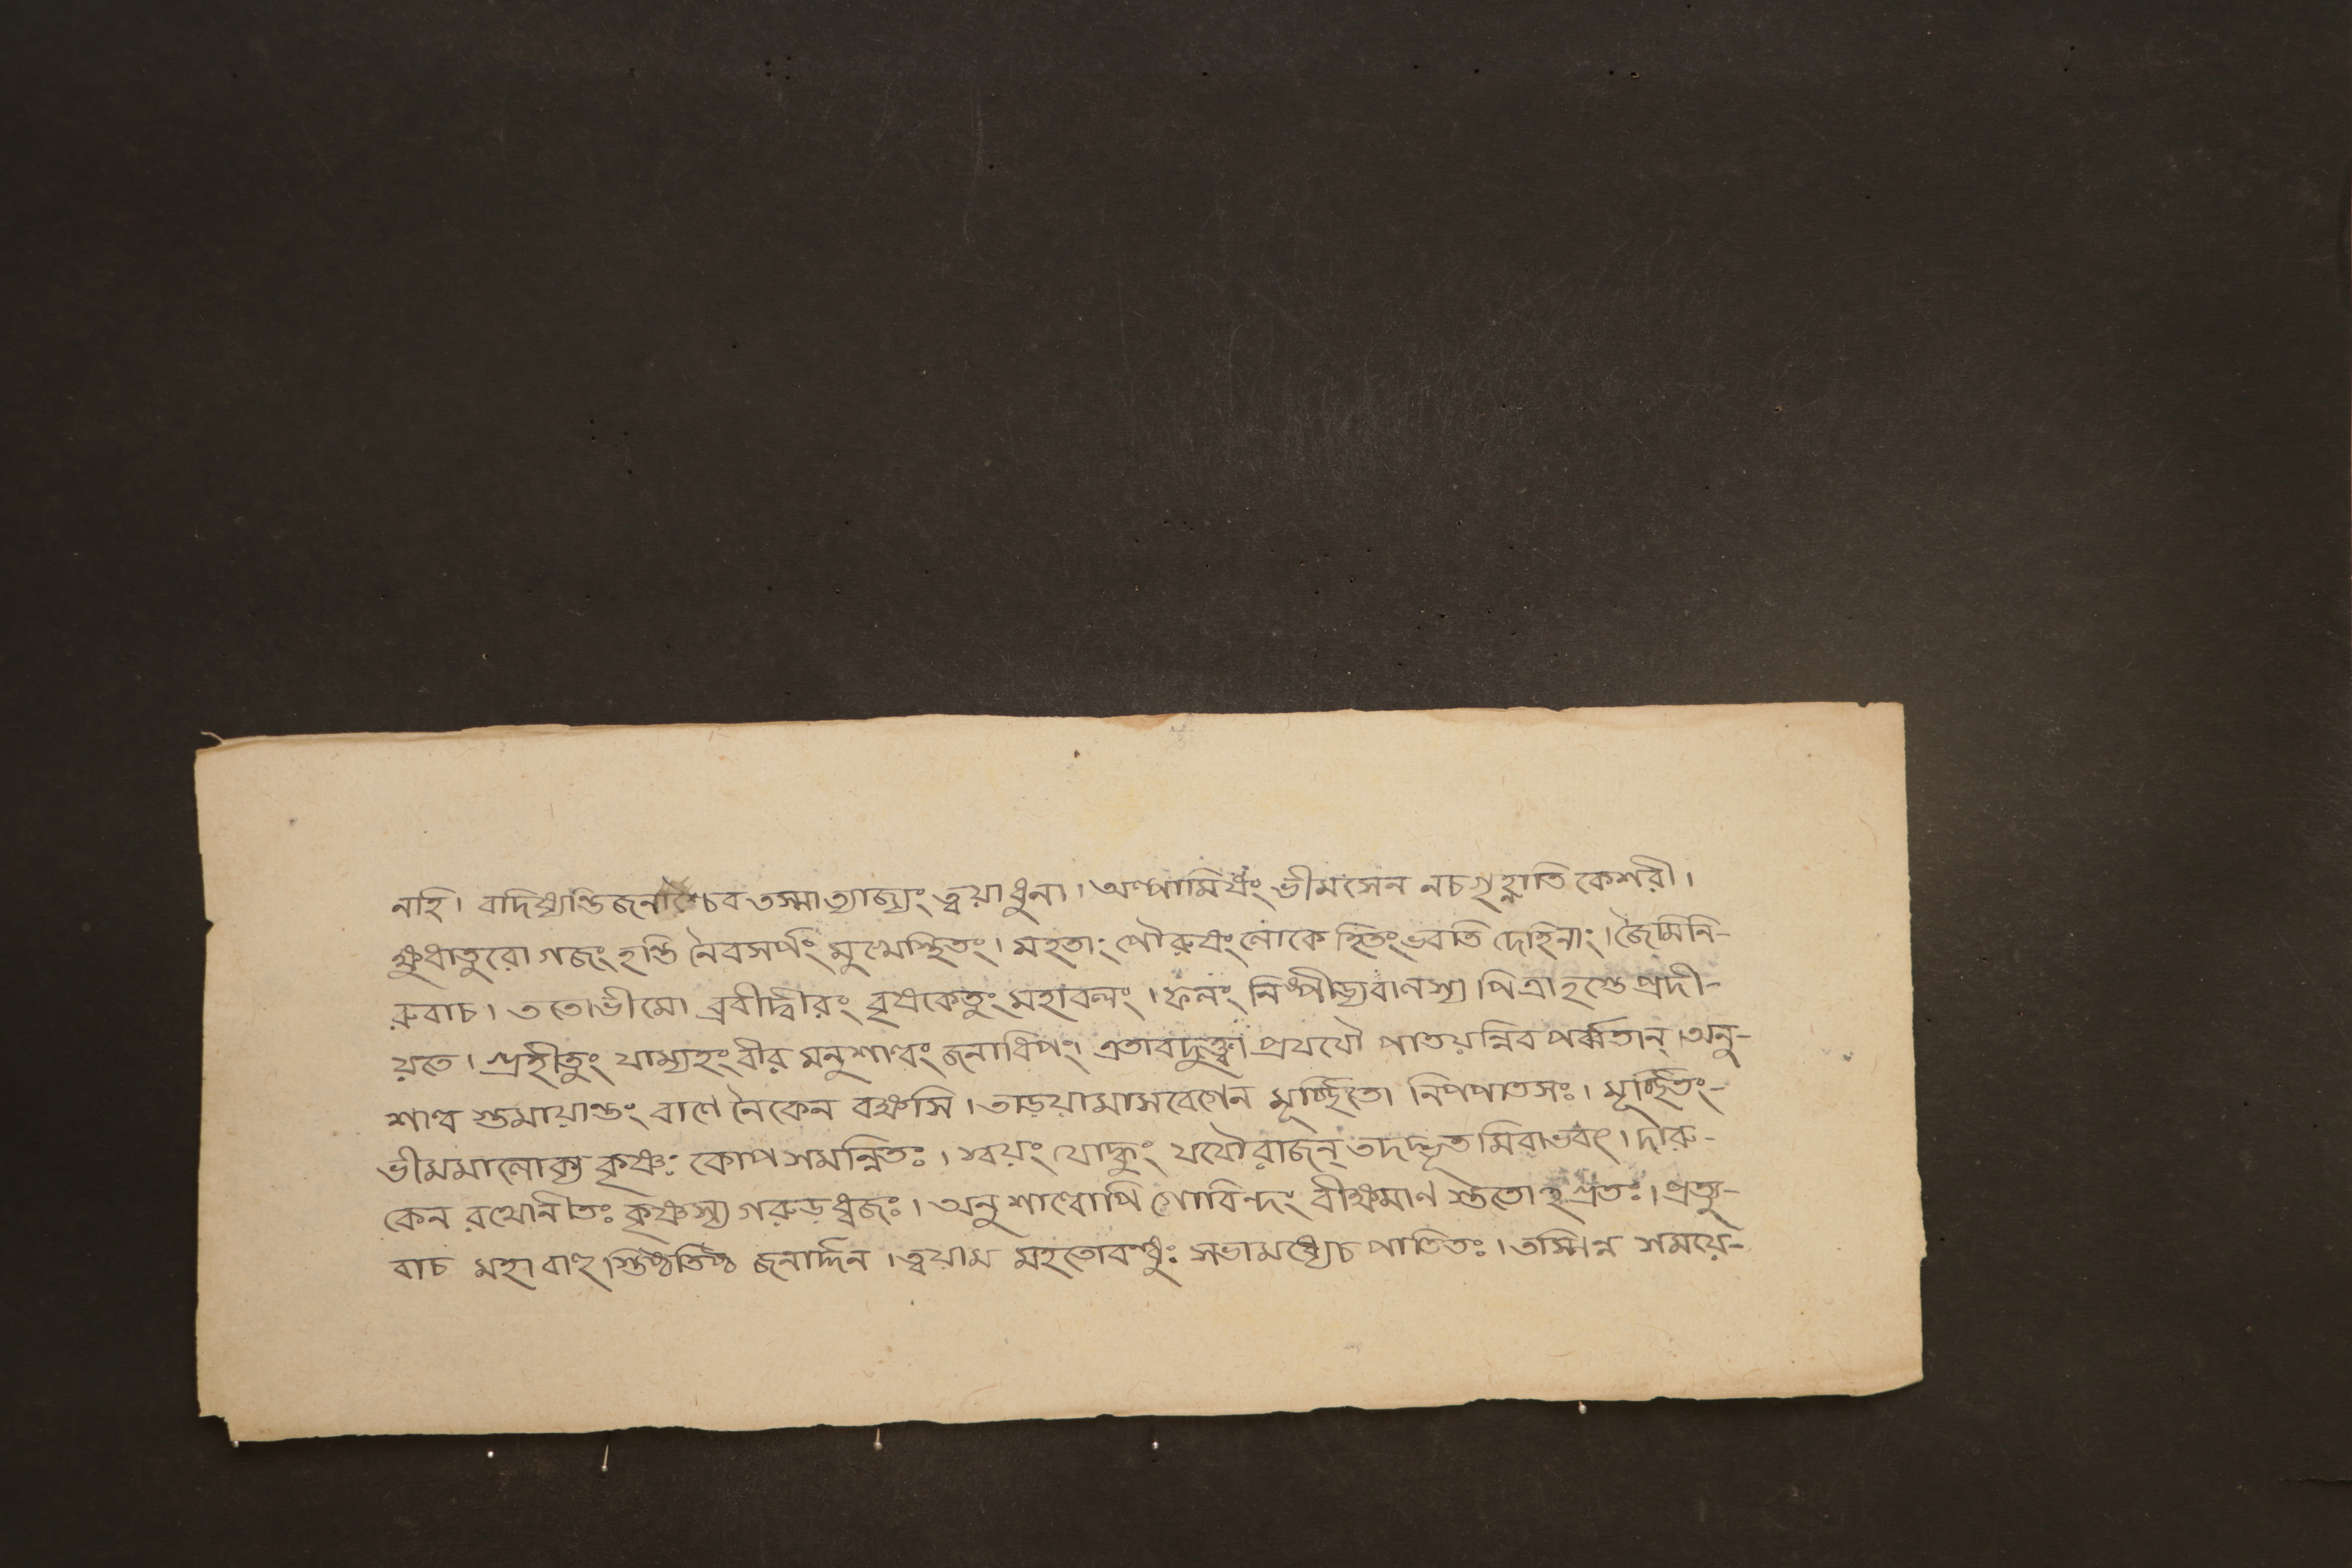 নহি। বদিষ্যন্তিজনাশ্চৈব তস্মাত্যাজ্যং ত্বয়াধুনা। অল্পামিষং ভীমসেন নচগৃহ্নাতি কেশরী।
ক্ষুধাতুরো গজং হন্তি নৈবসর্পং মুখেস্থিতং। মহতাং পৌরুষং লোকে হিতংভবতি দেহিনাং। জৈমিনি-
রুবাচ। ততোভীমো ব্রবীদ্বীরং বৃষকেতুং মহাবলং। ফলং নিষ্পীড্যবালস্য পিত্রাহস্তেপ্রদী-
য়তে। গ্রহীতুং যাম্যহংবীর মনুশাল্বং জনাধিপং। এতাবদুক্ত্বা প্রযযৌ পাতয়ন্নিব পর্ব্বতান্ অনু-
শাল্ব স্তমায়ান্তং বাণে নৈকেন বক্ষসি। তাড়য়ামাসবেগেন মূর্চ্ছিতো নিপপাতসঃ। মূর্চ্ছিতং-
ভীমমালোক্য কৃষ্ণঃ কোপসমন্বিতঃ। স্বয়ং যোদ্ধুং যযৌরাজন্ তদদ্ভূত মিবাভবৎ। দারু-
কেন রথোনীতঃ কৃষ্ণস্য গরুড়ধ্বজঃ। অনুশাল্বোপি গোবিন্দং বীক্ষমাণ স্ততোহগ্রতঃ। প্রত্যু-
বাচ মহাবাহু স্তিষ্ঠতিষ্ঠ জনার্দ্দন। ত্বয়াম মহতোবন্ধুঃ সভামধ্যেচ পাতিতঃ। তস্মিন্ন সময়ে-